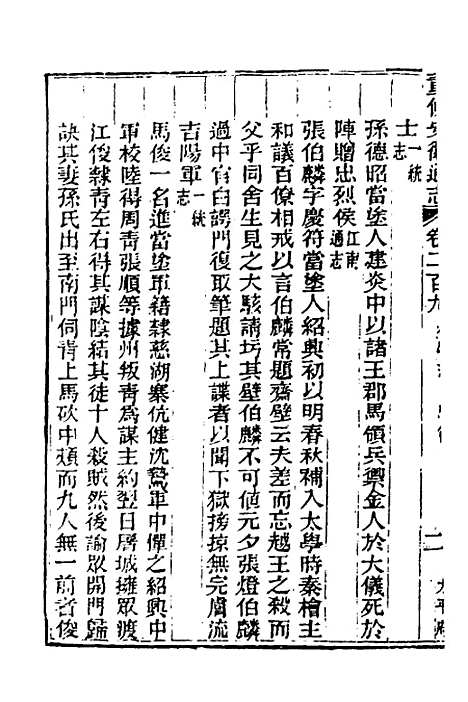 重修安徽通志 卷二百九
士一統志
孫德昭當塗人建炎中以諸王郡馬領兵與金人於大儀死於
陣贈忠烈侯江南通志
張伯麟字慶符當塗人紹興初以明春秋補入太學時秦檜主
和議百僚相戒以言伯麟常題齋壁云夫差而忘越王之殺而
父乎同舍生見之大駭請圬其壁伯麟不可値元夕張燈伯麟
過中官白諤門復取筆題其上諜者以聞下獄搒掠無完膚流
吉陽軍一統志
馬俊一名進當塗軍籍隸慈湖寨伉健沈鷙軍中憚之紹興中
軍校陸得周靑張順等據州叛靑爲謀主約翌日屠城擁眾渡
江俊隸靑左右得其謀陰結其徒十人殺賊然後諭眾開門歸
訣其妻孫氏出至南門伺靑上馬砍中頰而九人無一前者俊